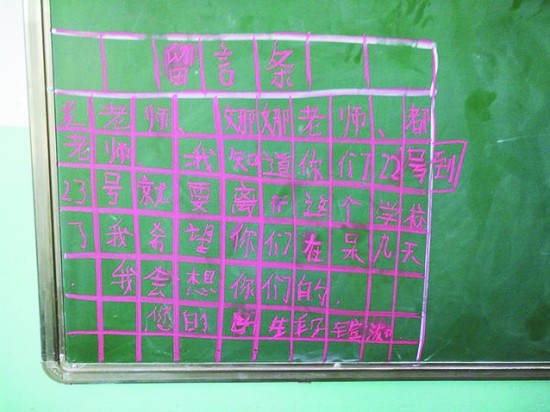 留言条
老师、娜娜老师、都
老师 我知道你们22号到
23号就要离开这个学校
了我希望你们在呆几天
. 我会想你们的.
您的学生